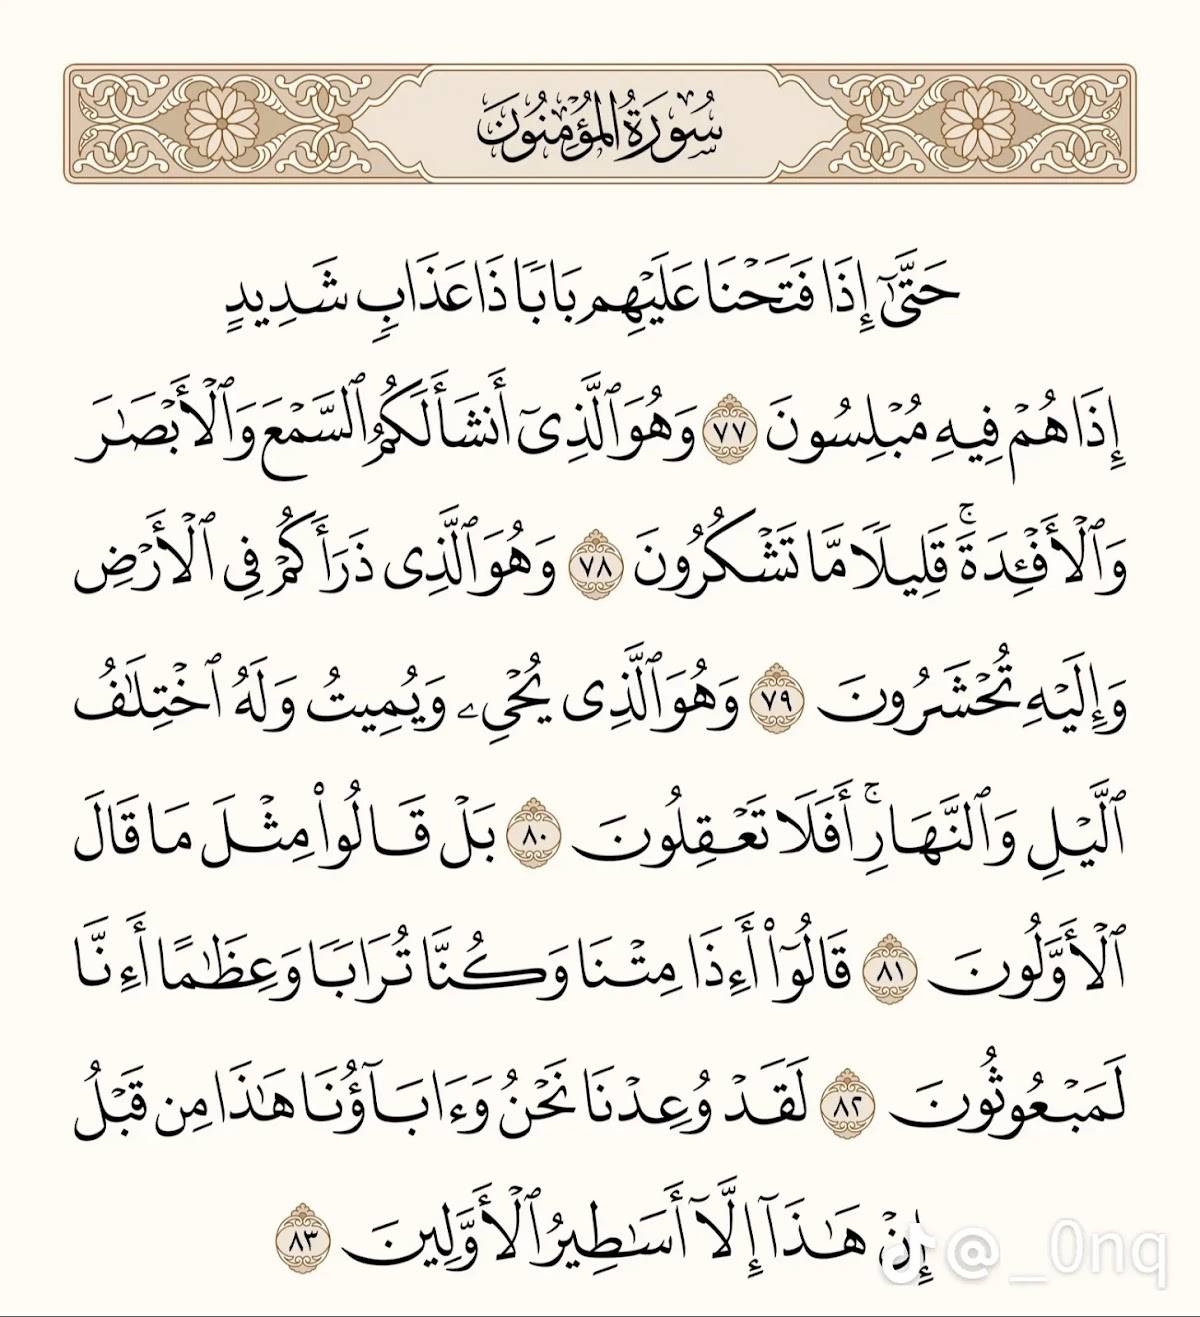 سُورَةُ المُؤْمِنُونَ
حَتَّىٰٓ إِذَا فَتَحْنَا عَلَيْهِم بَابًا ذَا عَذَابٍ شَدِيدٍ
إِذَا هُمْ فِيهِ مُبْلِسُونَ ٧٧ وَهُوَ ٱلَّذِىٓ أَنشَأَ لَكُمُ ٱلسَّمْعَ وَٱلْأَبْصَٰرَ
وَٱلْأَفْـِٔدَةَ ۚ قَلِيلًا مَّا تَشْكُرُونَ ٧٨ وَهُوَ ٱلَّذِى ذَرَأَكُمْ فِى ٱلْأَرْضِ
وَإِلَيْهِ تُحْشَرُونَ ٧٩ وَهُوَ ٱلَّذِى يُحْىِۦ وَيُمِيتُ وَلَهُ ٱخْتِلَٰفُ
ٱلَّيْلِ وَٱلنَّهَارِ ۚ أَفَلَا تَعْقِلُونَ ٨٠ بَلْ قَالُوا۟ مِثْلَ مَا قَالَ
ٱلْأَوَّلُونَ ٨١ قَالُوٓا۟ أَءِذَا مِتْنَا وَكُنَّا تُرَابًا وَعِظَٰمًا أَءِنَّا
لَمَبْعُوثُونَ ٨٢ لَقَدْ وُعِدْنَا نَحْنُ وَءَابَآؤُنَا هَٰذَا مِن قَبْلُ
إِنْ هَٰذَآ إِلَّآ أَسَٰطِيرُ ٱلْأَوَّلِينَ ٨٣
@_0nq